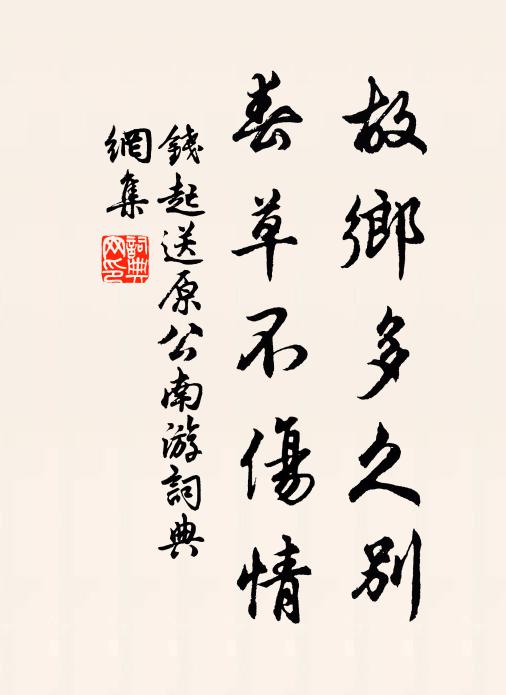 故鄉多久別
春草不傷情
錢起送原公南游詞典
網集
詞典
网印